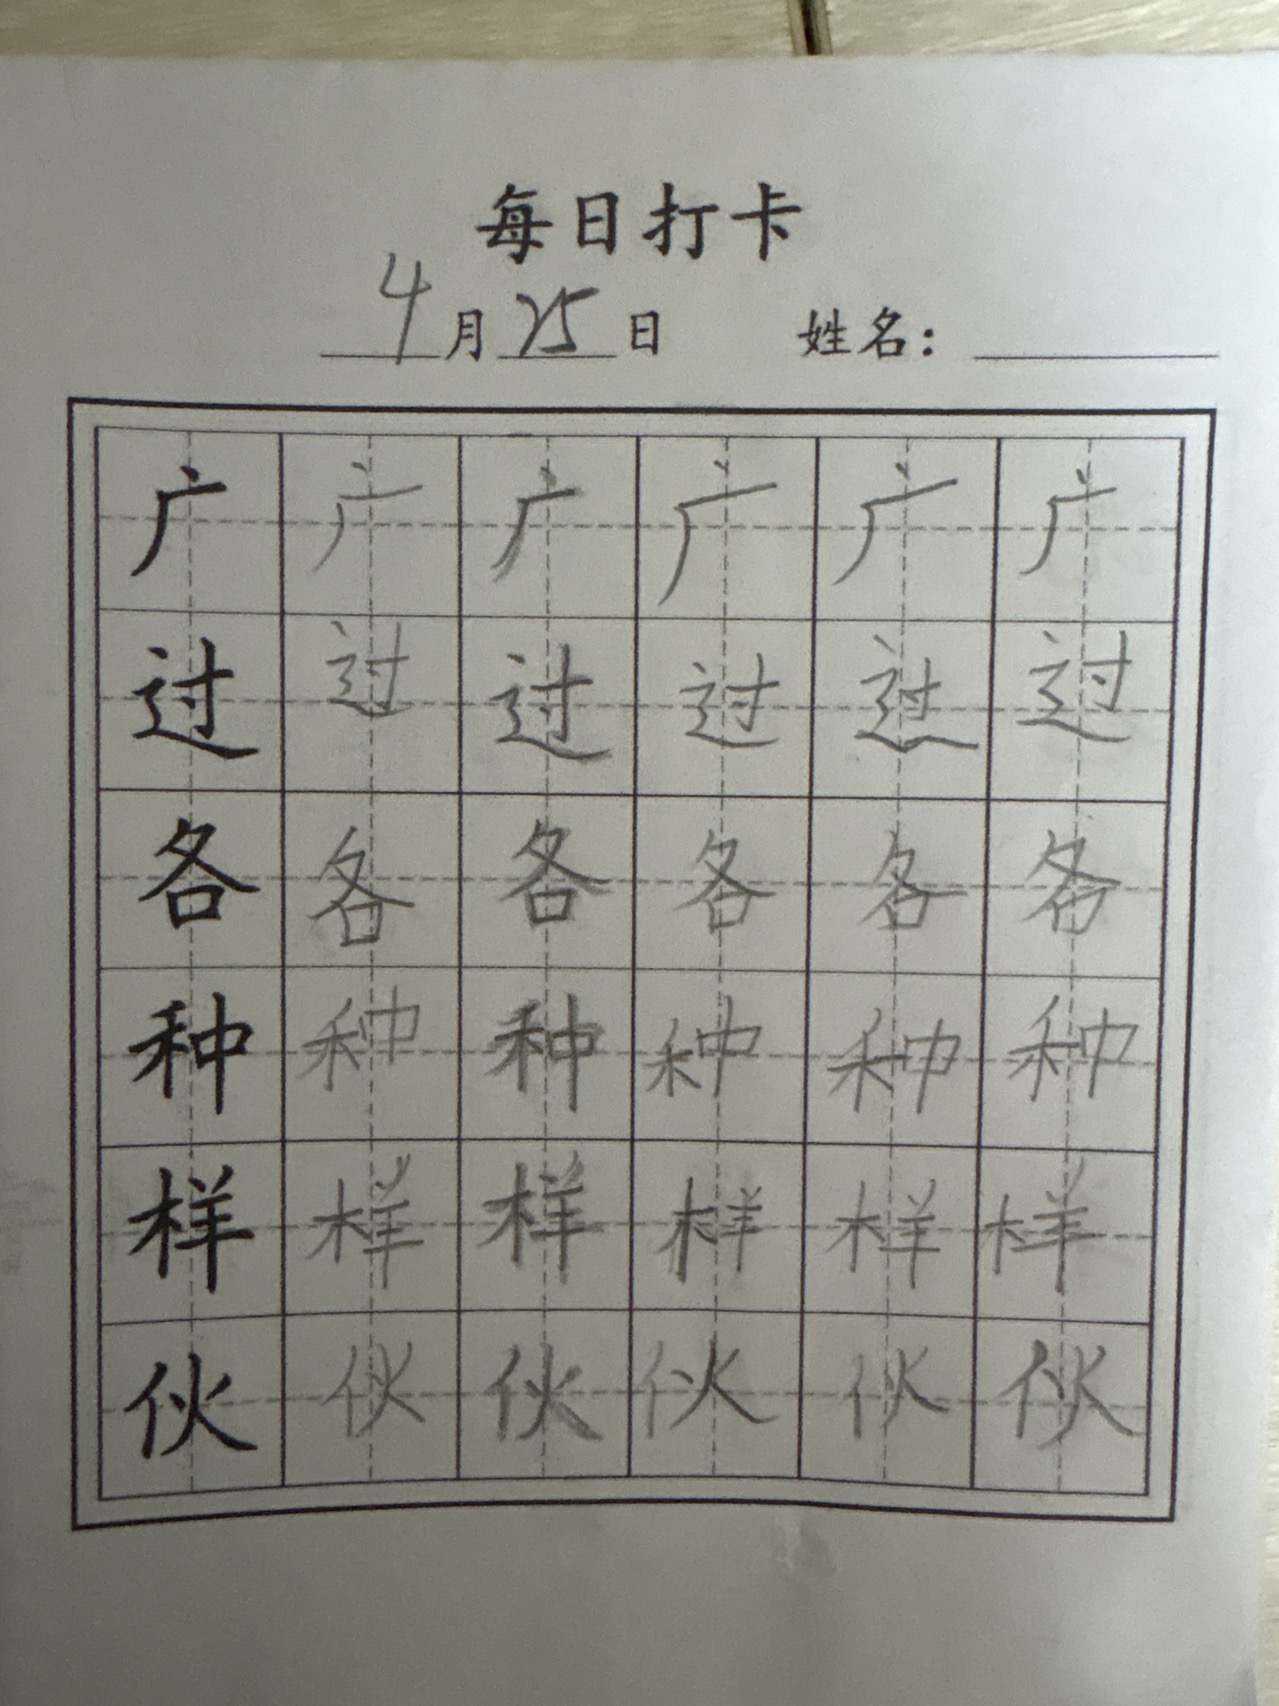 每日打卡
4月25日 姓名：
广广广广广广
过过过过过过
各各各各各各
种种种种种种
样样样样样样
伙伙伙伙伙伙